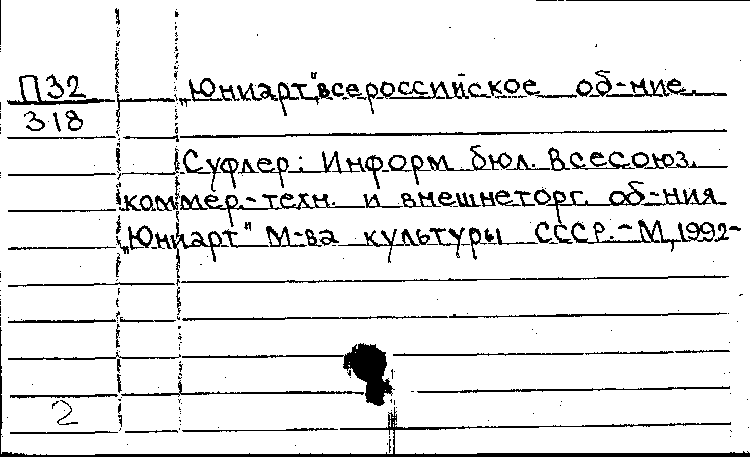 П32
318
„Юниарт", всероссийское об-ние.
Суфлер: Информ. бюл. Всесоюз.
коммер.-техн. и внешнеторг. об-ния
„Юниарт" М-ва культуры СССР.-М, 1992-
2